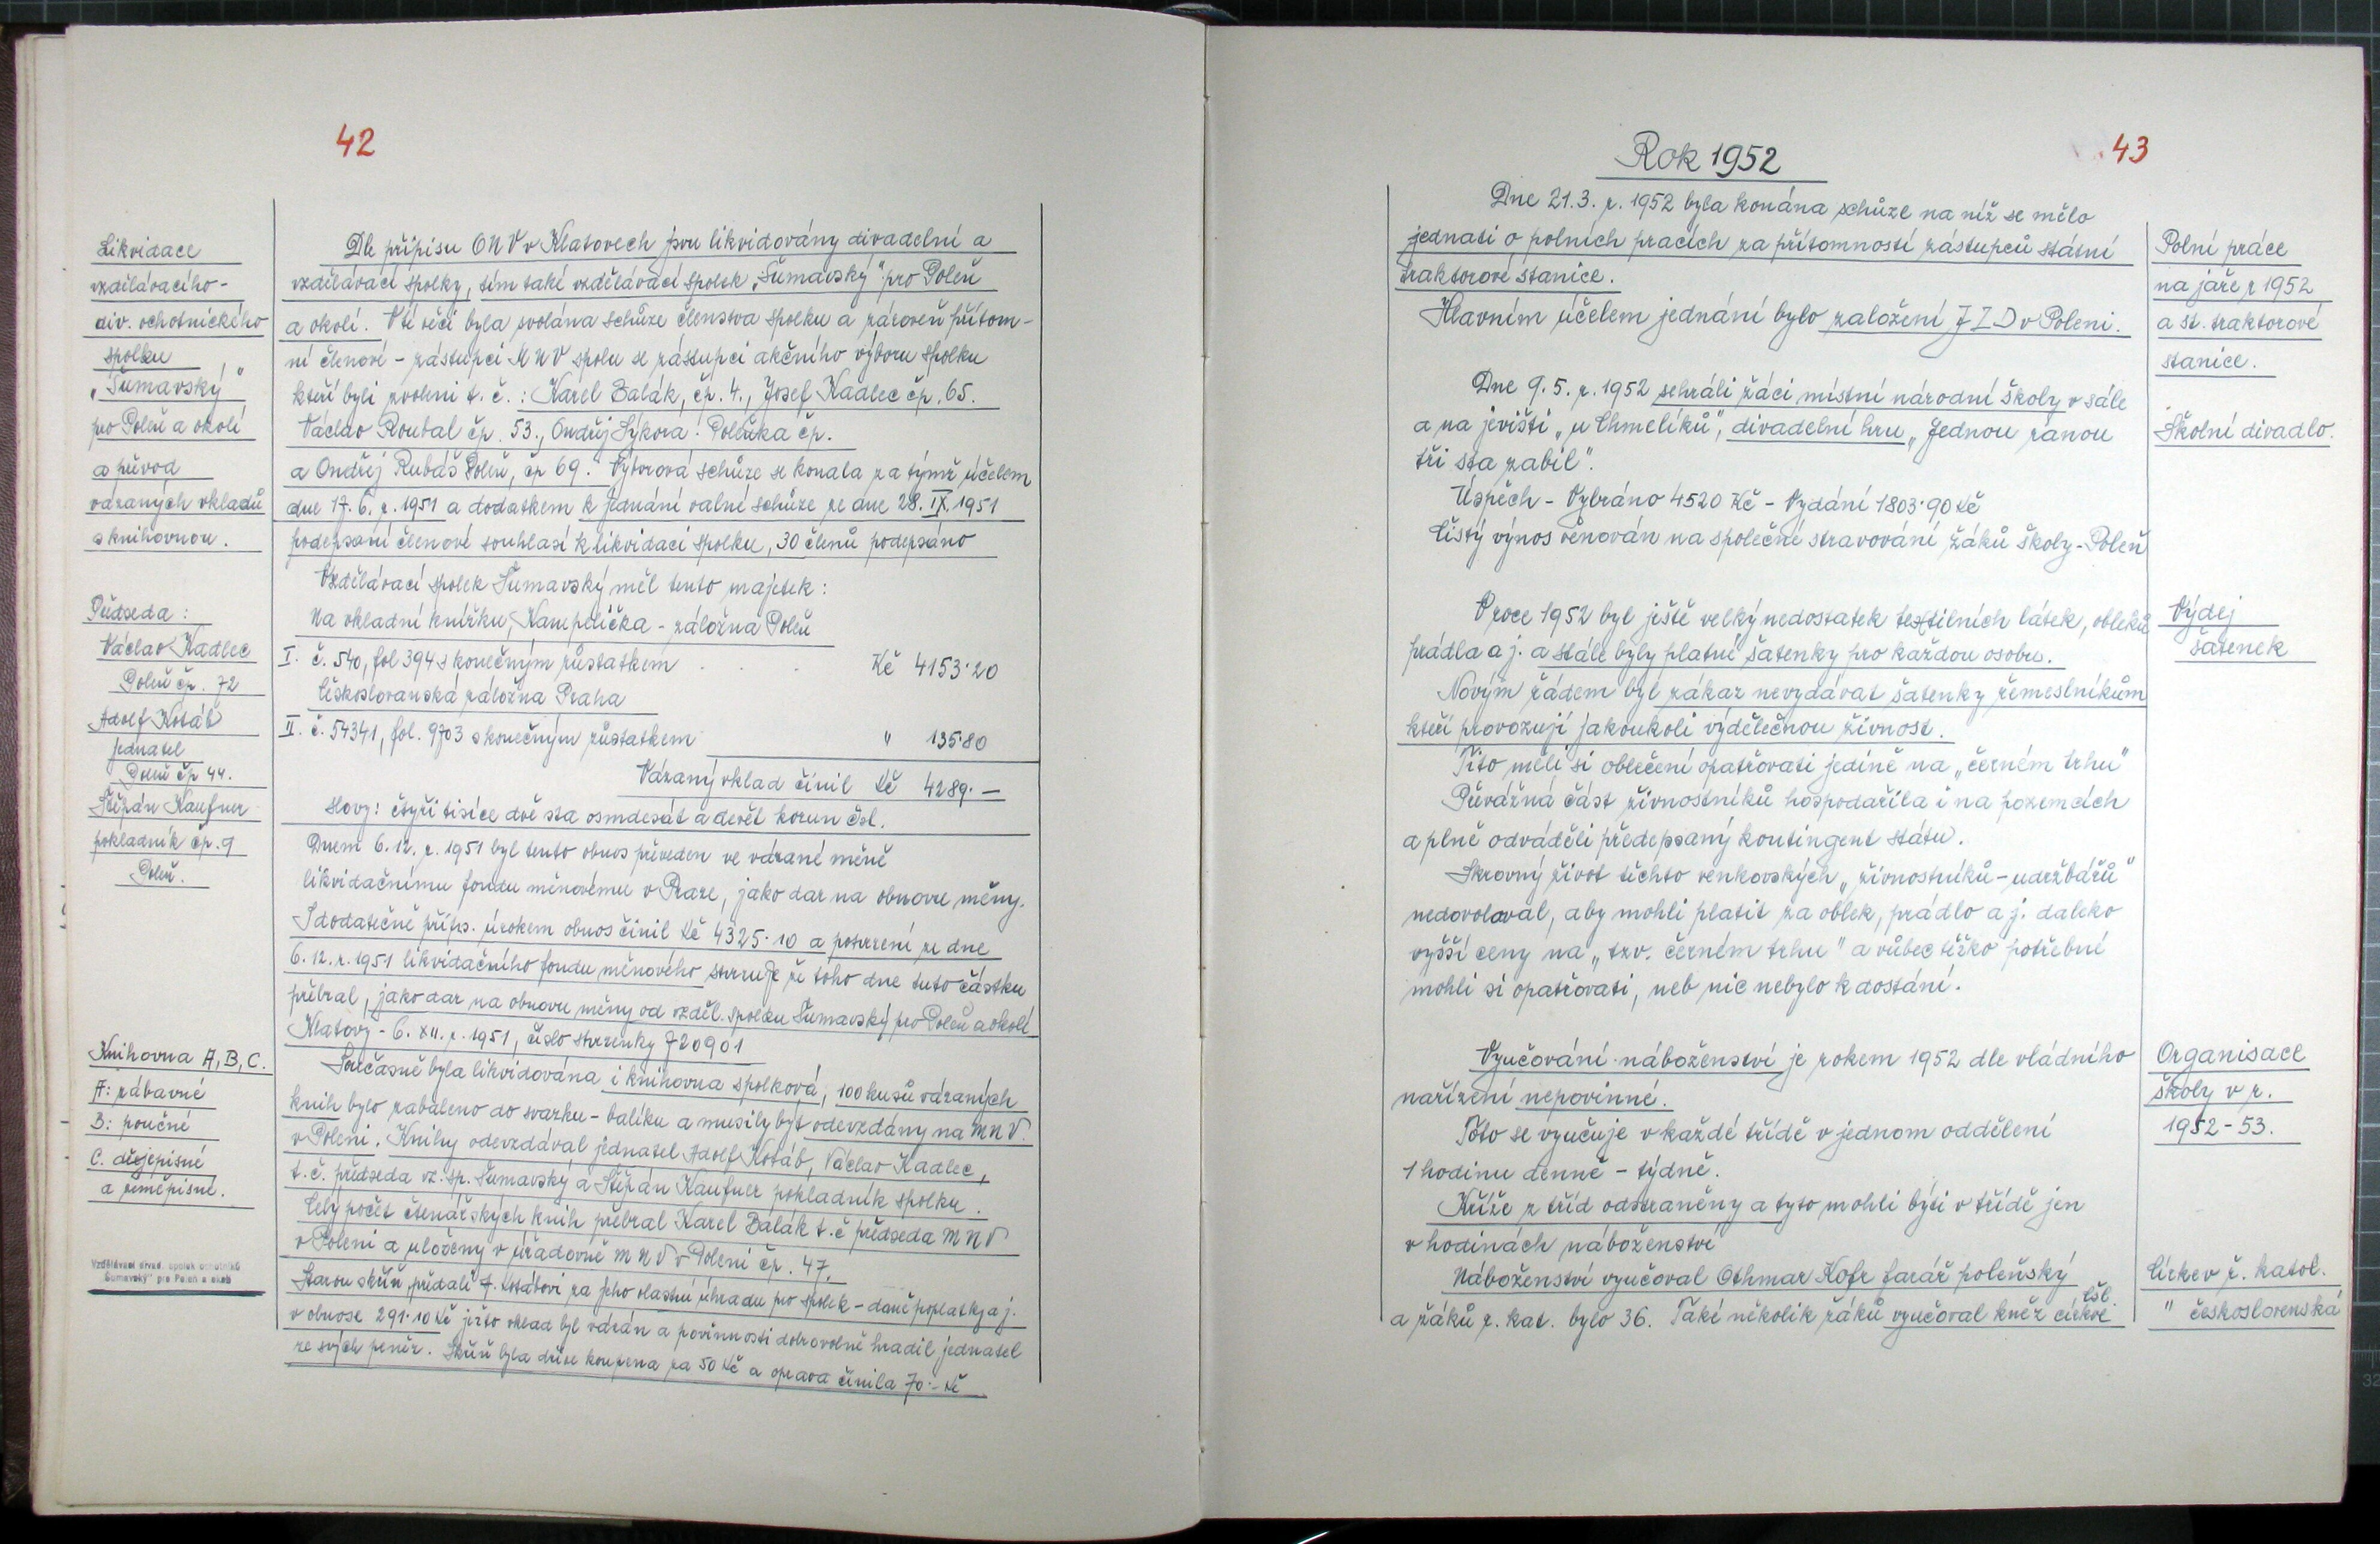 42
Likvidace
vzdělávacího-
div. ochotnického
spolku
„Šumavský"
pro Poleň a okolí
a převod
vázaných vkladů
s knihovnou.
Předseda:
Václav Kadlec
Poleň čp. 72
Adolf Kotáb
jednatel
Poleň čp 44.
Štěpán Kaufner
pokladník čp. 9
Poleň.
Knihovna A, B, C.
A: zábavné
B: poučné
C. dějepisné
a zeměpisné.
Vzdělávací divad. spolek ochotníků
"Šumavský" pro Poleň a okolí
Dle přípisu ONV v Klatovech jsou likvidovány divadelní a
vzdělávací spolky, tím také vzdělávací spolek „Šumavský" pro Poleň
a okolí. V té věci byla svolána schůze členstva spolku a zároveň přítom-
ní členové - zástupci MNV spolu se zástupci akčního výboru spolku
kteří byli zvoleni t. č.: Karel Balák, čp. 4., Josef Kadlec čp. 65.
Václav Roubal čp. 53., Ondřej Sýkora: Poleňka čp.
a Ondřej Rubáš Poleň, čp 69. Výborová schůze se konala za týmž účelem
dne 17. 6. r. 1951 a dodatkem k jednání valné schůze ze dne 28. IX. 1951
podepsaní členové souhlasí k likvidaci spolku, 30 členů podepsáno
Vzdělávací spolek Šumavský měl tento majetek:
Na vkladní knížku, Kampelička - záložna Poleň
I. č. 540, fol 394 s konečným zůstatkem . . . Kč 4153·20
Českoslovanská záložna Praha
II. č. 54341, fol. 9703 s konečným zůstatkem " 135·80
Vázaný vklad činil Kč 4289·—
slovy: čtyři tisíce dvě sta osmdesát a devět korun čsl.
Dnem 6. 12. r. 1951 byl tento obnos převeden ve vázané měně
likvidačnímu fondu měnovému v Praze, jako dar na obnovu měny.
I dodatečně přips. úrokem obnos činil Kč 4325·10 a potvrzení ze dne
6. 12. r. 1951 likvidačního fondu měnového stvrzuje že toho dne tuto částku
přebral, jako dar na obnovu měny od vzděl. spolku Šumavský pro Poleň a okolí
Klatovy - 6. XII. r. 1951, číslo stvrzenky 720901
Současně byla likvidována i knihovna spolková, 100 kusů vázaných
knih bylo zabaleno do svazku - balíku a musily být odevzdány na MNV.
v Poleni. Knihy odevzdával jednatel Adolf Kotáb, Václav Kadlec,
t. č. předseda vz. sp. Šumavský a Štěpán Kaufner pokladník spolku.
Celý počet čtenářských knih přebral Karel Balák t. č předseda MNV
v Poleni a uloženy v úřadovně MNV v Poleni čp. 47.
Starou skříň „přidali" J. Kotábovi za jeho vlastní úhradu pro spolek - daně poplatky a j.
v obnose 291·10 Kč ježto vklad byl vázán a povinnosti dobrovolně hradil jednatel
ze svých peněz. Skříň byla dříve koupena za 50 Kč a oprava činila 70·- Kč
43
Rok 1952
Dne 21. 3. r. 1952 byla konána schůze na níž se mělo
jednati o polních pracích za přítomností zástupců státní
traktorové stanice.
Hlavním účelem jednání bylo založení JZD v Poleni.
Dne 9. 5. r. 1952 sehráli žáci místní národní školy v sále
a na jevišti „u Chmelíků", divadelní hru „Jednou ranou
tři sta zabil".
Úspěch - Vybráno 4520 Kč - Vydání 1803·90 Kč
Čistý výnos věnován na společné stravování žáků školy - Poleň
V roce 1952 byl ještě velký nedostatek textilních látek, obleků
prádla a j. a stále byly platné šatenky pro každou osobu.
Novým řádem byl zákaz nevydávat šatenky řemeslníkům
kteří provozují jakoukoli výdělečnou živnost.
Tito měli si oblečení opatřovati jedině na „černém trhu"
Převážná část živnostníků hospodařila i na pozemcích
a plně odváděli předepsaný kontingent státu.
Skrovný život těchto venkovských „živnostníků - udržbářů"
nedovoloval, aby mohli platit za oblek, prádlo a j. daleko
vyšší ceny na „tzv. černém trhu" a vůbec těžko potřebné
mohli si opatřovati, neb nic nebylo k dostání.
Vyučování náboženství je rokem 1952 dle vládního
nařízení nepovinné.
Toto se vyučuje v každé třídě v jednom oddělení
1 hodinu denně - týdně.
Kříže z tříd odstraněny a tyto mohli býti v třídě jen
v hodinách náboženství
Náboženství vyučoval Othmar Kofr farář poleňský
a žáků ř. kat. bylo 36. Také několik žáků vyučoval kněz církve čsl.
Polní práce
na jaře r 1952
a st. traktorové
stanice.
Školní divadlo.
Výdej
šatenek
Organisace
školy v r.
1952-53.
Církev ř. katol.
" československá